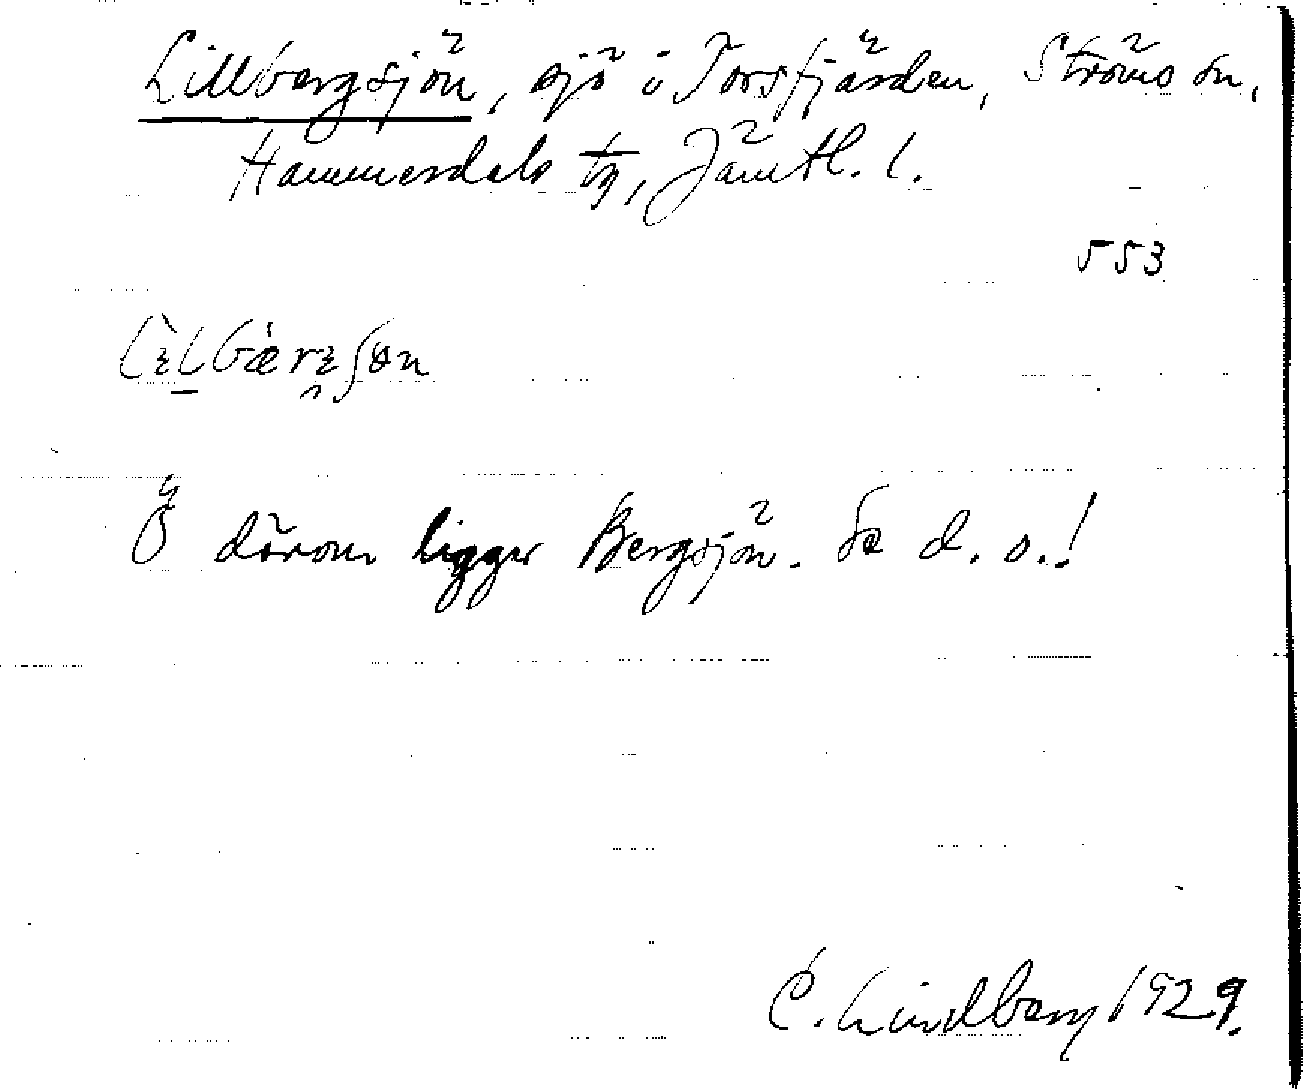 Lillbergsjön, sjö i Torsfjärden, Ströms sn,
Hammerdals tg, Jämtl. l.
553
Ö därom ligger Bergsjön. Se d. o.!
C. Lindberg 1929.